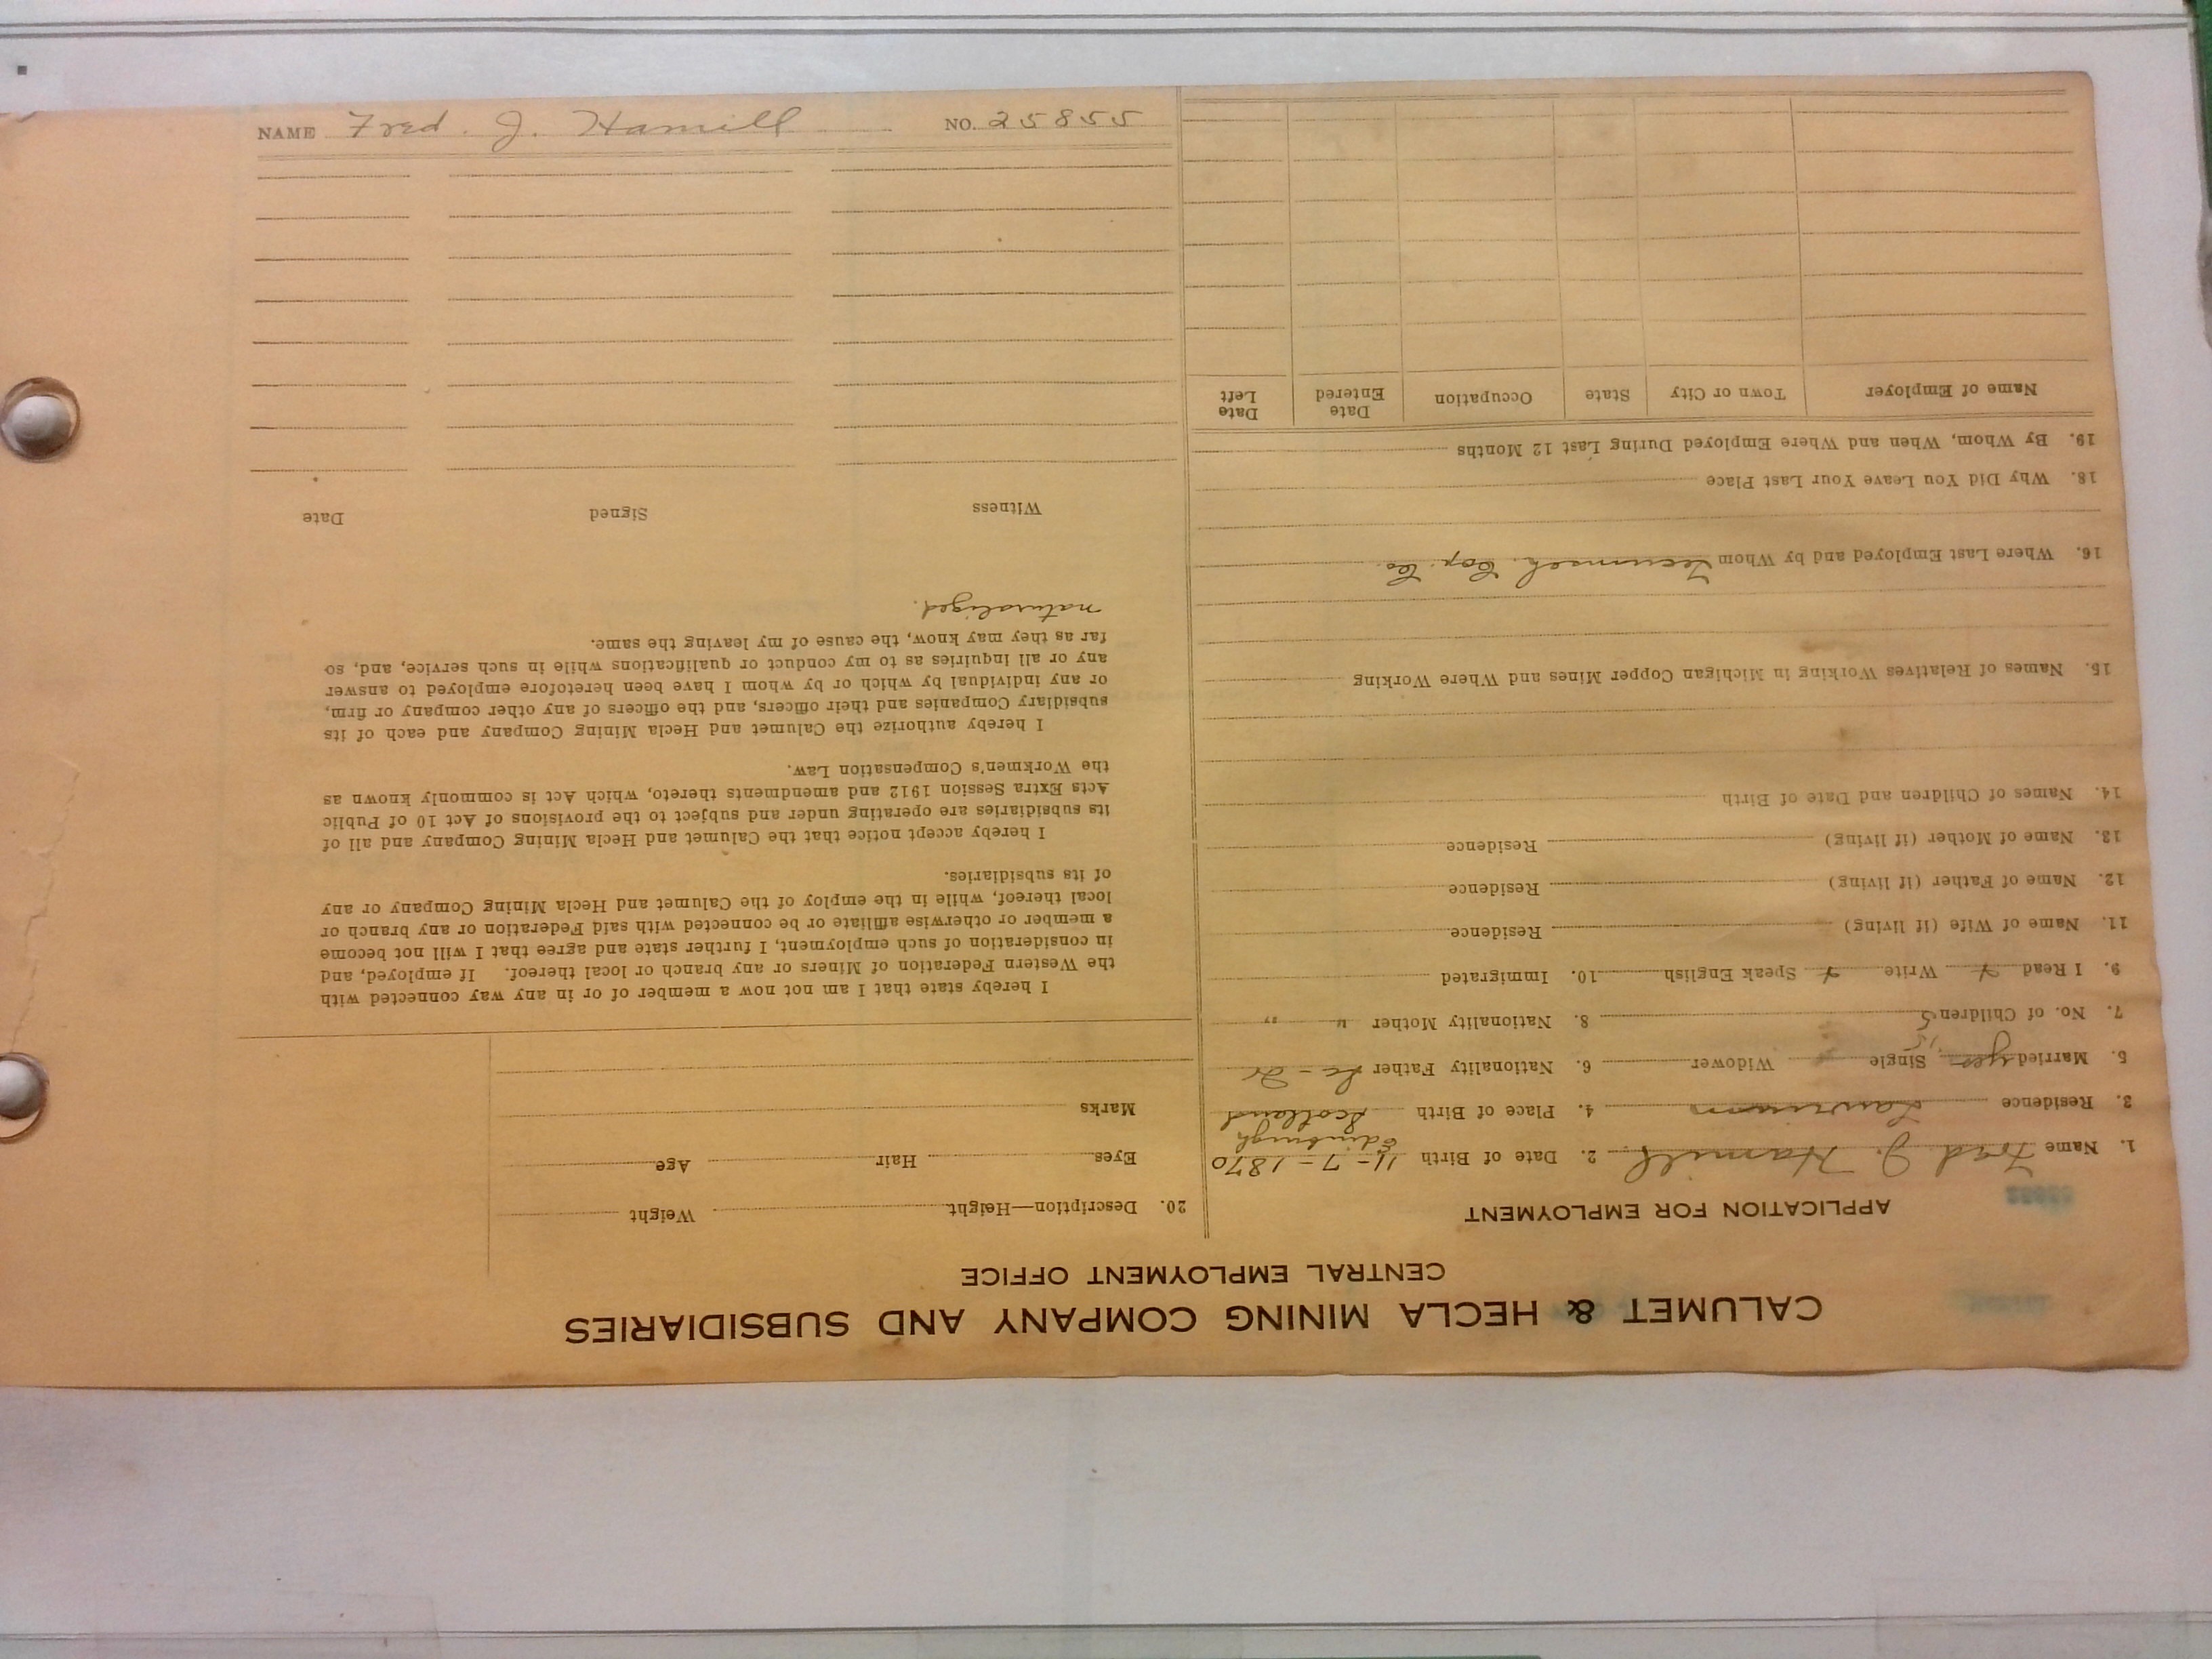 NAME Fred. J. Hamill NO. 25855
CALUMET & HECLA MINING COMPANY AND SUBSIDIARIES
CENTRAL EMPLOYMENT OFFICE
APPLICATION FOR EMPLOYMENT
1. Name Fred J. Hamill 2. Date of Birth 11-7-1870
Edinburgh
3. Residence Laurium 4. Place of Birth Scotland
5. Married yes Single Widower 6. Nationality Father Sc-Ir
7. No. of Children 5 8. Nationality Mother " "
9. I Read Write Speak English 10. Immigrated
11. Name of Wife (if living) Residence
12. Name of Father (if living) Residence
13. Name of Mother (if living) Residence
14. Names of Children and Date of Birth
15. Names of Relatives Working in Michigan Copper Mines and Where Working
16. Where Last Employed and by Whom Tecumseh. Cop. Co.
18. Why Did You Leave Your Last Place
19. By Whom, When and Where Employed During Last 12 Months
Name of Employer Town or City State Occupation Date Entered Date Left
20. Description—Height Weight
Eyes Hair Age
Marks
I hereby state that I am not now a member of or in any way connected with
the Western Federation of Miners or any branch or local thereof. If employed, and
in consideration of such employment, I further state and agree that I will not become
a member or otherwise affiliate or be connected with said Federation or any branch or
local thereof, while in the employ of the Calumet and Hecla Mining Company or any
of its subsidiaries.
I hereby accept notice that the Calumet and Hecla Mining Company and all of
its subsidiaries are operating under and subject to the provisions of Act 10 of Public
Acts Extra Session 1912 and amendments thereto, which Act is commonly known as
the Workmen's Compensation Law.
I hereby authorize the Calumet and Hecla Mining Company and each of its
subsidiary Companies and their officers, and the officers of any other company or firm,
or any individual by which or by whom I have been heretofore employed to answer
any or all inquiries as to my conduct or qualifications while in such service, and, so
far as they may know, the cause of my leaving the same.
naturalized.
Witness Signed Date